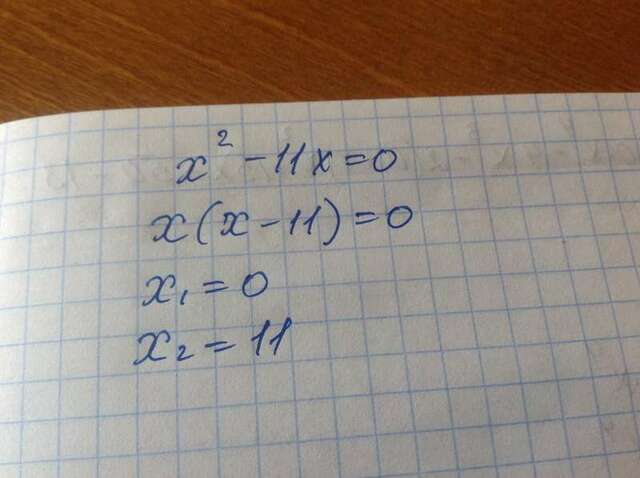 x² - 11x = 0
x(x - 11) = 0
x₁ = 0
x₂ = 11